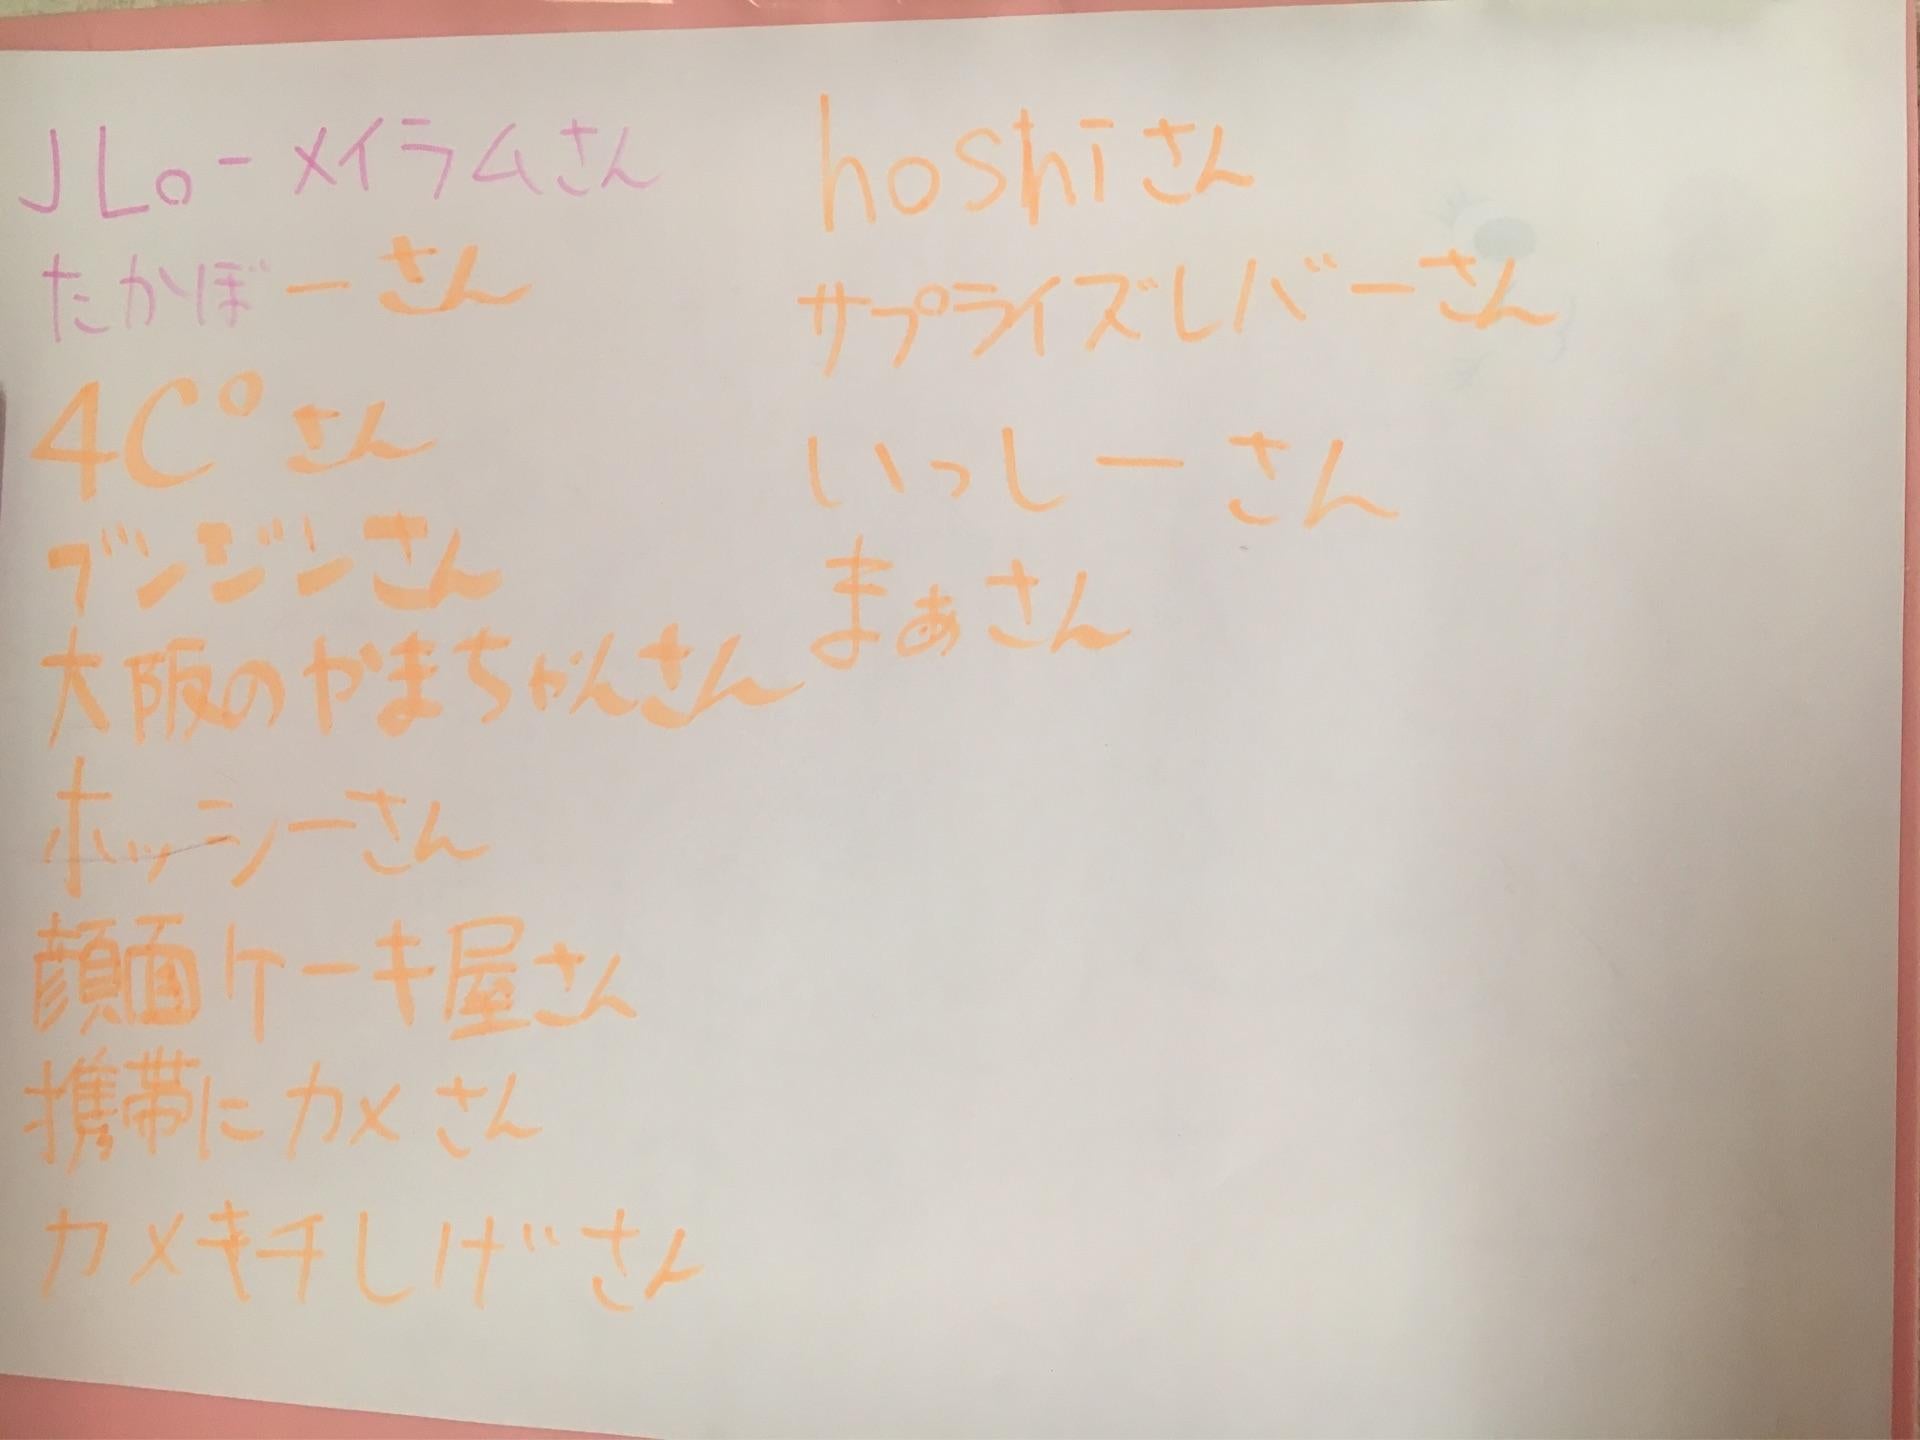 JLo-メイラムさん
たかぼーさん
4C°さん
ブンジンさん
大阪のやまちゃんさん
ホッシーさん
顔面ケーキ屋さん
携帯にカメさん
カメキチしげさん
hoshiさん
サプライズレバーさん
いっしーさん
まぁさん